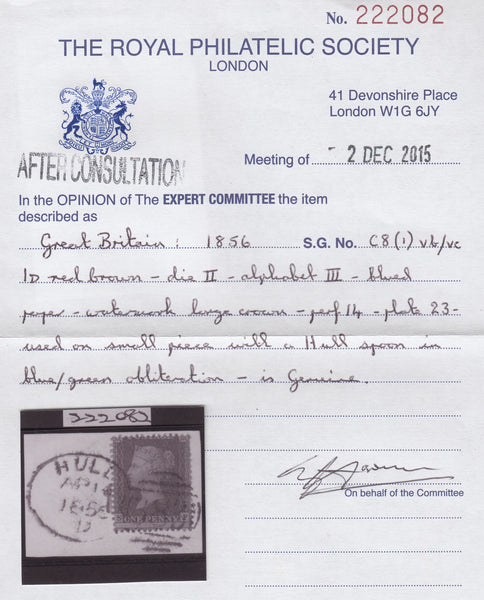 No. 222082
THE ROYAL PHILATELIC SOCIETY
LONDON
41 Devonshire Place
London W1G 6JY
AFTER CONSULTATION
Meeting of - 2 DEC 2015
In the OPINION of The EXPERT COMMITTEE the item
described as
Great Britain: 1856 S.G. No. C8(1) vb/vc
1D red brown - die II - alphabet III - blued
paper - watermark large crown - perf 14 - plate 23 -
used on small piece with a Hull spoon in
blue/green obliteration - is Genuine.
222082
HULL
AP 14
1856
ONE PENNY
On behalf of the Committee